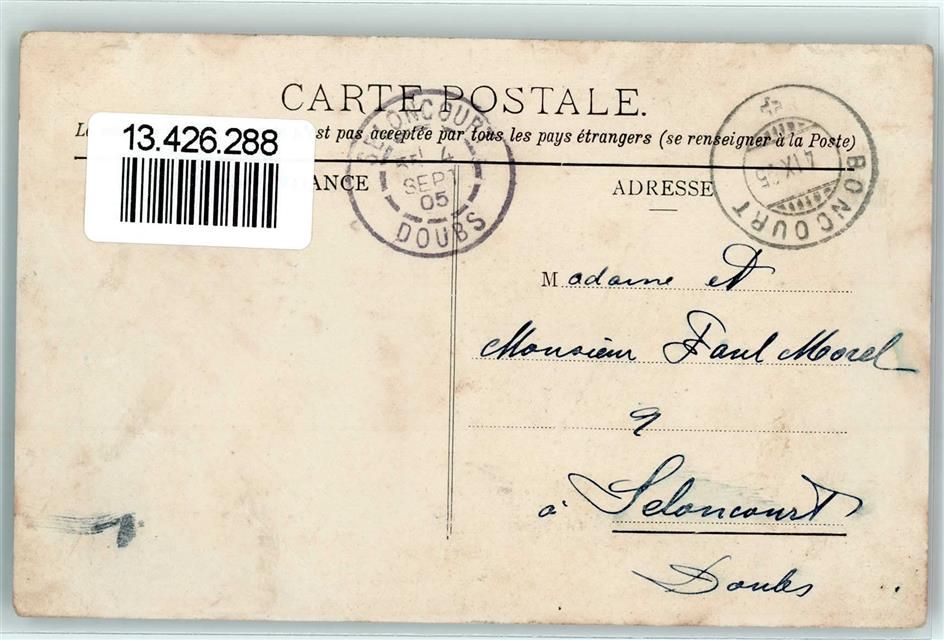 CARTE POSTALE.
st pas acceptée par tous les pays étrangers (se renseigner à la Poste)
13.426.288
SELONCOURT
4
SEPT
05
DOUBS
BONCOURT
4 IX 05
ANCE
ADRESSE
Madame et
Monsieur Paul Morel
à Seloncourt
Doubs